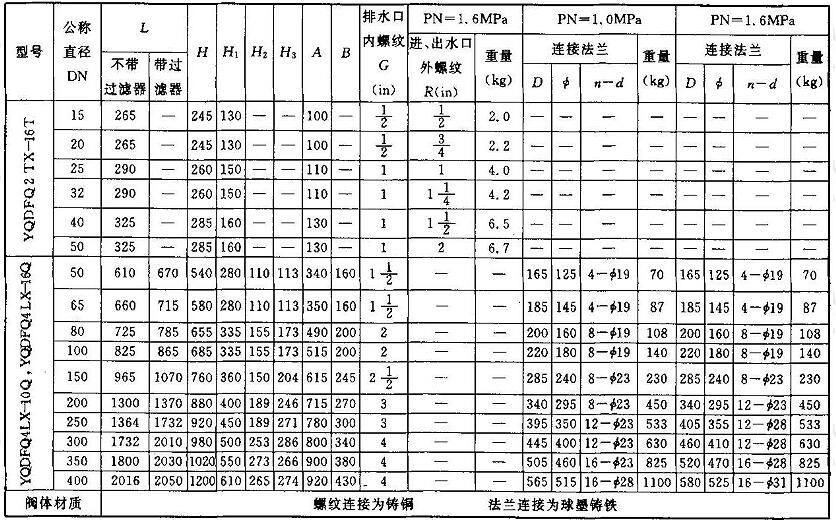 型号 公称直径 DN L H H₁ H₂ H₃ A B 排水口内螺纹 G (in) PN=1.6MPa PN=1.0MPa PN=1.6MPa
不带过滤器 带过滤器 进、出水口外螺纹 R(in) 重量 (kg) 连接法兰 重量 (kg) 连接法兰 重量 (kg)
D ϕ n-d D ϕ n-d
YQDFQ2TX-16T
15 265 — 245 130 — — 100 — 1/2 1/2 2.0 — — — — — — — —
20 265 — 245 130 — — 100 — 1/2 3/4 2.2 — — — — — — — —
25 290 — 260 150 — — 110 — 1 1 4.0 — — — — — — — —
32 290 — 260 150 — — 110 — 1 1 1/4 4.2 — — — — — — — —
40 325 — 285 160 — — 130 — 1 1 1/2 6.5 — — — — — — — —
50 325 — 285 160 — — 130 — 1 2 6.7 — — — — — — — —
YQDFQ4LX-10Q,YQDFQ4LX-16Q
50 610 670 540 280 110 113 340 160 1 1/2 — — 165 125 4-ϕ19 70 165 125 4-ϕ19 70
65 660 715 580 280 110 113 350 160 1 1/2 — — 185 145 4-ϕ19 87 185 145 4-ϕ19 87
80 725 785 655 335 155 173 490 200 2 — — 200 160 8-ϕ19 108 200 160 8-ϕ19 108
100 825 865 685 335 155 173 515 200 2 — — 220 180 8-ϕ19 140 220 180 8-ϕ19 140
150 965 1070 760 360 150 204 615 245 2 1/2 — — 285 240 8-ϕ23 230 285 240 8-ϕ23 230
200 1300 1370 880 400 189 246 715 270 3 — — 340 295 8-ϕ23 450 340 295 12-ϕ23 450
250 1364 1732 920 450 189 271 780 300 3 — — 395 350 12-ϕ23 533 405 355 12-ϕ28 533
300 1732 2010 980 500 253 286 800 340 4 — — 445 400 12-ϕ23 630 460 410 12-ϕ28 630
350 1800 2030 1020 550 273 266 900 380 4 — — 505 460 16-ϕ23 825 520 470 16-ϕ28 825
400 2016 2050 1200 610 265 274 920 430 4 — — 565 515 16-ϕ28 1100 580 525 16-ϕ31 1100
阀体材质 螺纹连接为铸铜 法兰连接为球墨铸铁